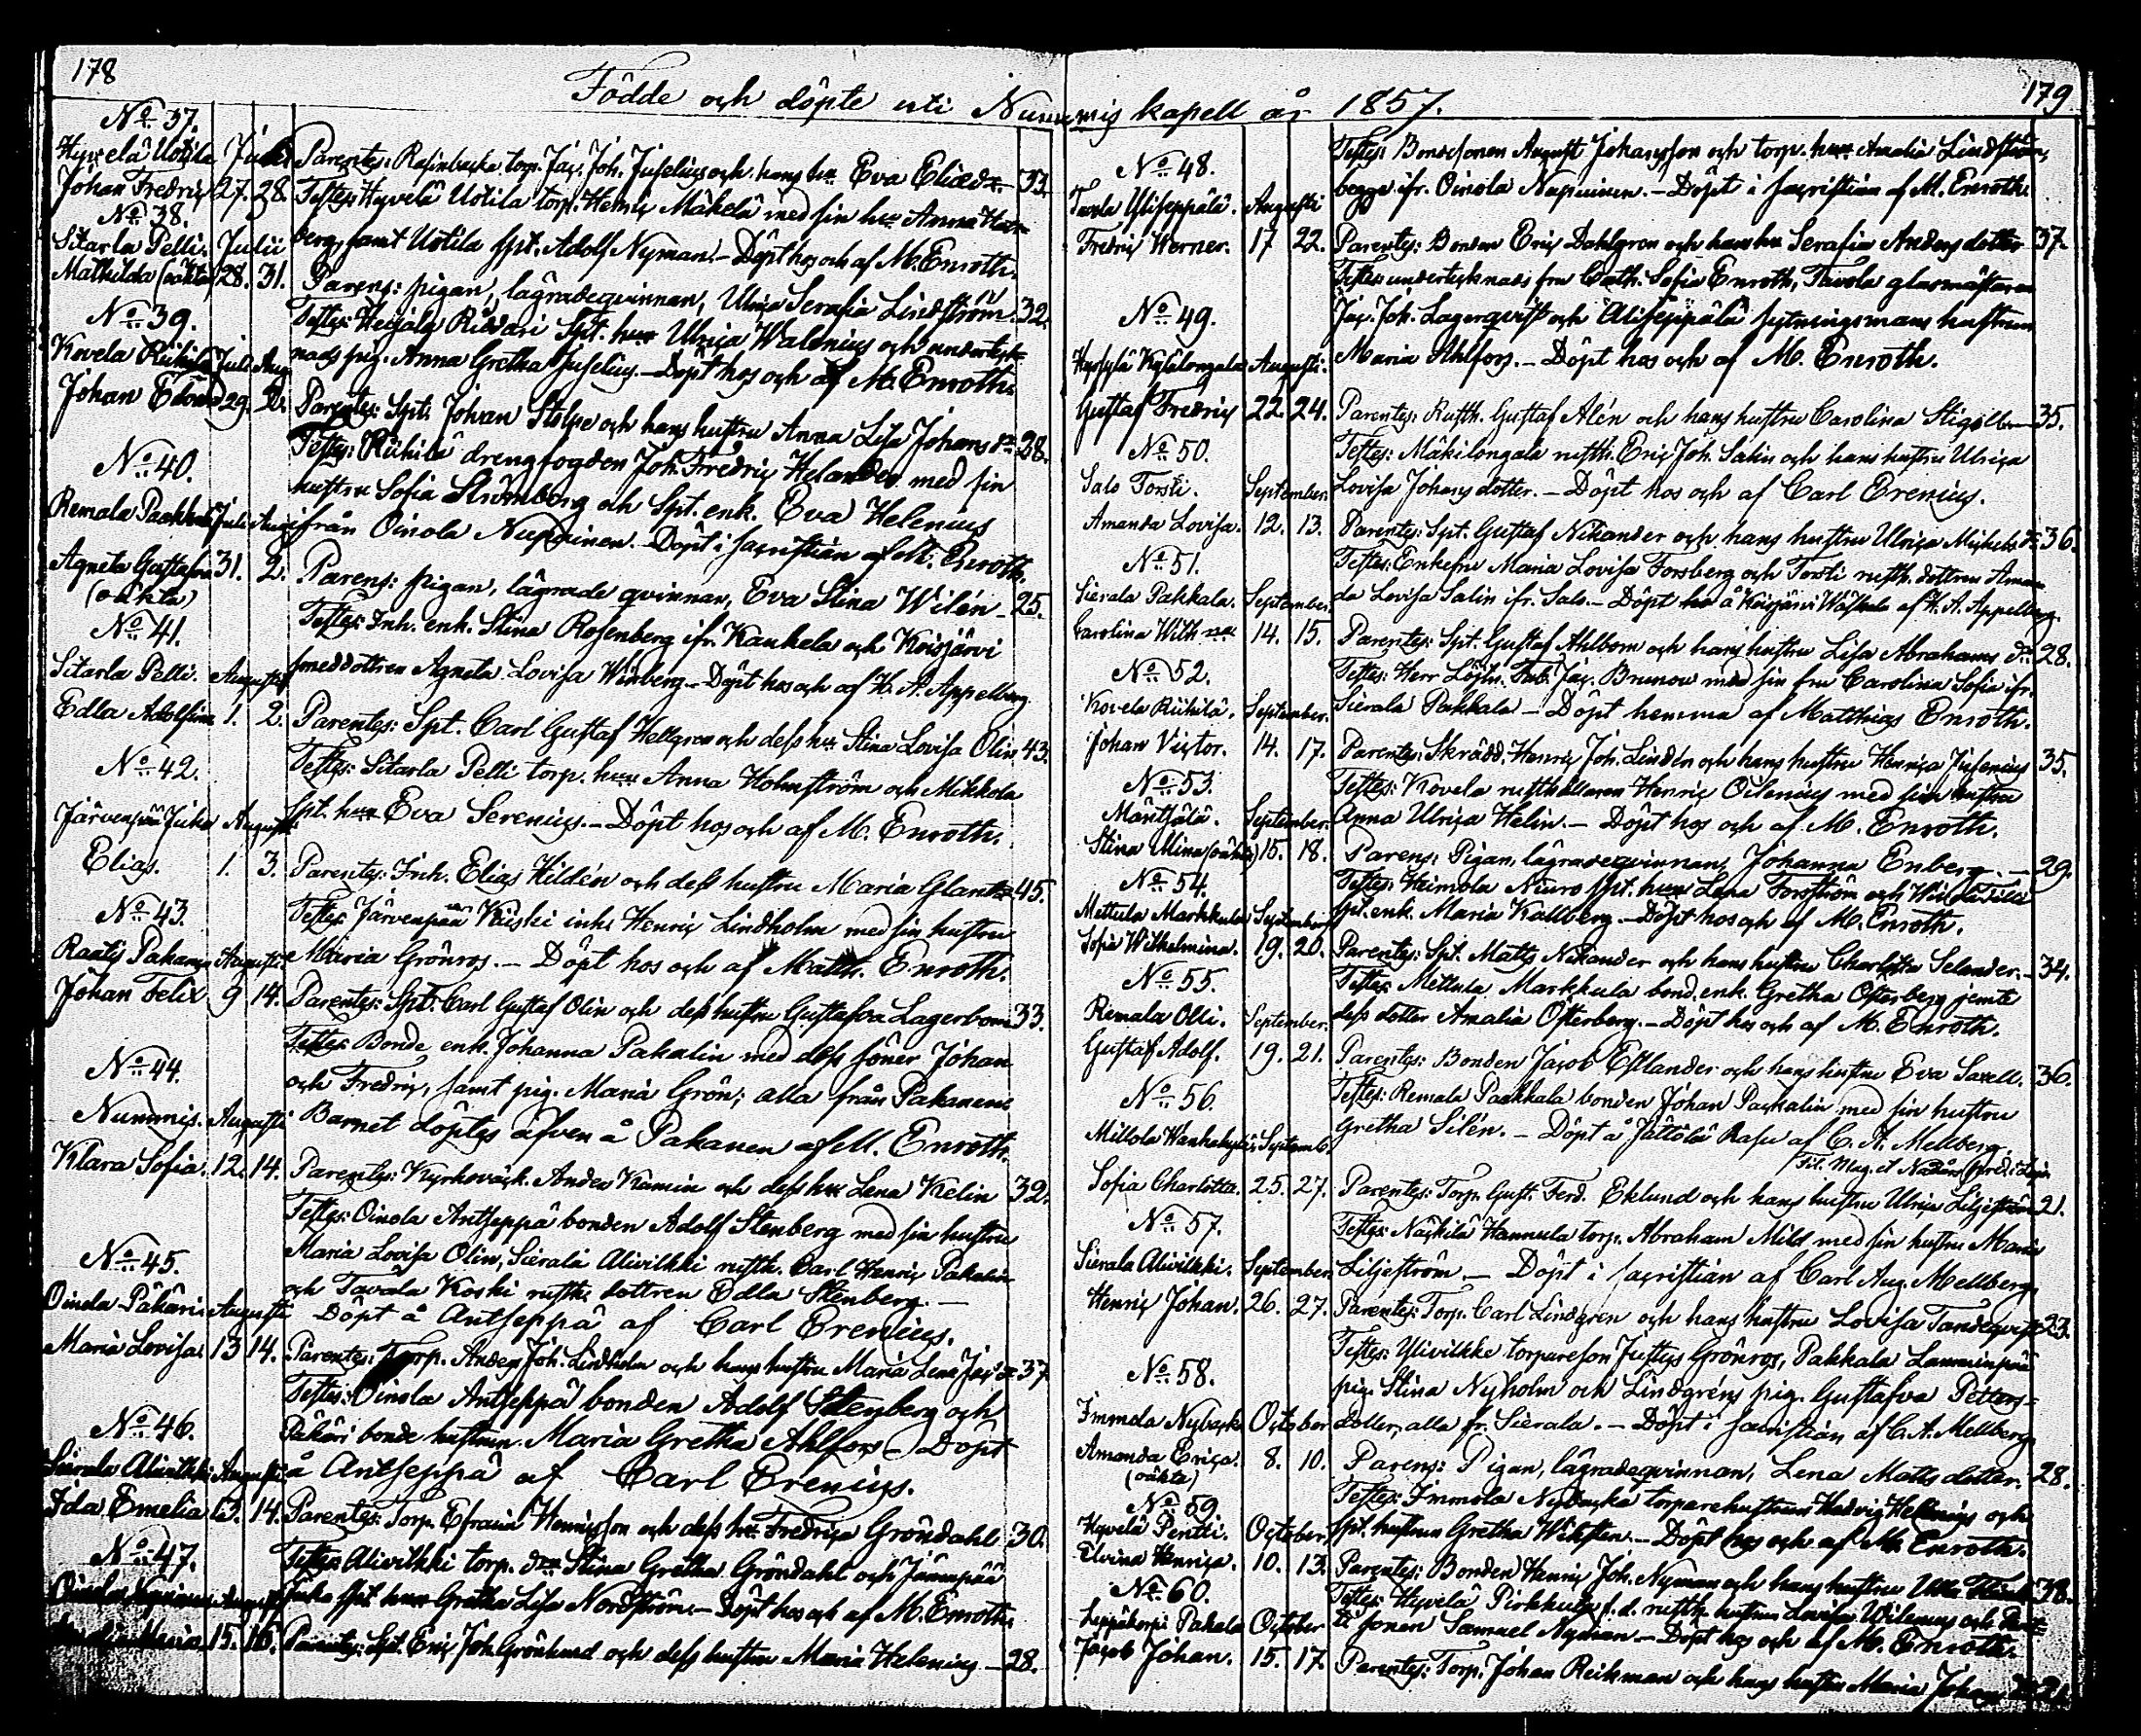 178
Födde och döpte uti Nummis kapell år 1857.
179
No 37.
Hyvelä Uotila Julii
Johan Fredric 27. 28.
Parentes: Rasinbacka torp. Jac. Joh. Juselius och hans hu Eva Eliædr. 33.
Testes: Hyvelä Uotila torp. Henric Mäkelä med sin hu Anna
berg, samt Uotila Spt. Adolf Nyman. – Döpt hos och af M. Enroth.
No 38.
Sitarla Pelli. Julii
Mathilda (oäkta) 28. 31.
Parens: pigan, lägradeqvinnan, Ulrica Serafia Lindström. 32.
Testes: Heijala Riddari Spt. hu Ulrica Walenius och underteck-
nads pig. Anna Gretha Juselius. – Döpt hos och af M. Enroth.
No 39.
Kovela Riihilä Julii Aug.
Johan Edvard 29. 2.
Parentes: Spt. Johan Stolpe och hans hustru Anna Lisa Johans dr 28.
Testes: Riihilä drengfogden Joh. Fredric Helander med sin
hustru Sofia Strömberg och Spt. enk. Eva Helenius
från Oinola Nuppuinen. – Döpt i sacristian af M. Enroth.
No 40.
Remala Paakkala Julii Augusti
Agneta Gustafva 31. 2.
(oäkta)
Parens: pigan, lägrade qvinnan, Eva Stina Wilén – 25.
Testes: Inh. enk. Stina Rosenberg ifr. Kaukela och Koisjärvi
smeddottren Agneta Lovisa Winberg. – Döpt hos och af H. A. Appelberg.
No 41.
Sitarla Pelli. Augusti
Edla Adolfina 1. 2.
Parentes: Spt. Carl Gustaf Hellgren och dess hu Stina Lovisa Olin 43.
Testes: Sitarla Pelli torp. hu Anna Holmström och Mikkola
Spt. hu Eva Serenius. – Döpt hos och af M. Enroth.
No 42.
Järvenpää Juho Augusti
Elias. 1. 3.
Parentes: Inh. Elias Hildén och dess hustru Maria Glantz 45.
Testes: Järvenpää Käiski inh. Henric Lindholm med sin hustru
Maria Grönros. – Döpt hos och af Matth. Enroth.
No 43.
Raatis Pakanen Augusti
Johan Felix 9 14.
Parentes: Spt. Carl Gustaf Olin och dess hustru Gustafva Lagerbom 33.
Testes: Bonde enk. Johanna Pakalin med dess söner Johan
och Fredric, samt pig. Maria Grön; alla från Pakanen
Barnet döptes äfven å Pakanen af M. Enroth.
No 44.
Nummis. Augusti
Klara Sofia. 12. 14.
Parentes: Kyrkoväck. Anders Kamin och dess hu Lena Kelin 32.
Testes: Oinola Antseppä bonden Adolf Stenberg med sin hustru
Maria Lovisa Olin, Sierala Alivilkki rusth. Carl Henric Pakalin
och Tavola Koski rusth. dottren Edla Stenberg. –
Döpt å Antseppä af Carl Erenius.
No 45.
Oinola Päkäri Augusti
Maria Lovisa. 13 14.
Parentes: Torp. Anders Joh. Lindholm och hans hustru Maria Lena Jac. dr 37
Testes: Oinola Antseppä bonden Adolf Stenberg och
Päkäri bonde hustrun Maria Gretha Ahlfors – Döpt
å Antseppä af Carl Erenius.
No 46.
Sierala Alivilkki Augusti
Ida Emelia 13. 14.
Parentes: Torp. Efraim Henricsson och dess hu Fredrica Gröndahl 30.
Testes: Alivilkki torp. dr Stina Gretha Gröndahl och Järvenpää
Juho Spt. hu Gretha Lisa Nordström. – Döpt hos och af M. Enroth.
No 47.
Oinola Augusti
Maria 15. 16.
Parentes: Spt. Eric Joh. Grönlund och dess hustru Maria Helenius – 28.
Testes: Bondesonen August Johansson och torp. hu Amalia Lindström,
begge ifr. Oinola Nuppuinen. – Döpt i sacristian af M. Enroth.
No 48.
Tavola Yliseppälä. Augusti
Fredric Werner. 17 22.
Parentes: Bonden Eric Dahlgren och hans hu Serafia Anders dotter 37.
Testes: undertecknads fru Cath. Sofia Enroth, Tavola glasmästaren
Jac. Joh. Lagerqvist och Aliseppälä sytningsmans hustrun
Maria Ahlfors. – Döpt hos och af M. Enroth.
No 49.
Augusti.
Gustaf Fredric 22. 24.
Parentes: Rusth. Gustaf Alén och hans hustru Carolina 35.
Testes: Mäkilongala rusth. Eric Joh. Salin och hans hustru Ulrica
Lovisa Johans dotter. – Döpt hos och af Carl Erenius.
No 50.
Salo Torsti. September.
Amanda Lovisa. 12. 13.
Parentes: Spt. Gustaf Nikander och hans hustru Ulrica Michels dr 36.
Testes: Enkefru Maria Lovisa Forsberg och Torsti rusth. dottren Aman-
da Lovisa Salin ifr. Salo. – Döpt å Koisjärvi af H. A. Appelberg.
No 51.
Sierala Pakkala. September.
Carolina Wilh 14. 15.
Parentes: Spt. Gustaf Ahlbom och hans hustru Lisa Abrahams dr 28.
Testes: Herr Löjtn. Fab. Jac. Brunow med sin fru Carolina Sofia ifr.
Sierala Pakkala – Döpt hemma af Matthias Enroth.
No 52.
Kovela Riihilä. September.
Johan Victor. 14. 17.
Parentes: Skrädd. Henric Joh. Lindén och hans hustru Henrica Jusenius 35.
Testes: Kovela rusthållaren Henric Oilenius med sin hustru
Anna Ulrica Helin. – Döpt hos och af M. Enroth.
No 53.
Mäntsälä. September.
Stina Ulina (oäkta) 15. 18.
Parens: Pigan, lägradeqvinnan, Johanna Enberg. – 29.
Testes: Heimola Niuro Spt. hu Lena Forsström och
Spt. enk. Maria Kallberg. – Döpt hos och af M. Enroth.
No 54.
Mettula Markkula September
Sofia Wilhelmina. 19. 20.
Parentes: Spt. Matts Nikander och hans hustru Charlotta Selander. – 34.
Testes: Mettula Markkula bond. enk. Gretha Österberg jemte
dess dotter Amalia Österberg. – Döpt hos och af M. Enroth.
No 55.
Remala Olli. September.
Gustaf Adolf. 19. 21.
Parentes: Bonden Jacob Estlander och hans hustru Eva Saxell. 36.
Testes: Remala Paakkala bonden Johan Packalin med sin hustru
Gretha Silén. – Döpt å Jättölä af C. A. Mellberg,
No 56.
Millola September
Sofia Charlotta. 25. 27.
Parentes: Torp. Gust. Ferd. Eklund och hans hustru Ulrica Liljeström 21.
Testes: Näckilä Hannula torp. Abraham Mild med sin hustru Maria
Liljeström. – Döpt i sacristian af Carl Aug. Mellberg.
No 57.
Sierala Alivilkki. September
Henric Johan. 26. 27.
Parentes: Torp. Carl Lindgren och hans hustru Lovisa Tandeqvist 23.
Testes: Ylivilkki torpareson Justus Grönros, Pakkala Lamminpää
pig. Stina Nyholm och Lindgréns pig. Gustafva Petters-
dotter, alla fr. Sierala. – Döpt i sacristian af C. A. Mellberg.
No 58.
Immola Nybacka October
Amanda Erica. 8. 10.
(oäkta)
Parens: Pigan, lägradeqvinnan, Lena Matts dotter. 28.
Testes: Immola Nybacka torparehustrun Hedvig Hellenius och
Spt. hustrun Gretha Wiksten. – Döpt hos och af M. Enroth.
No 59
Hyvelä Pentti. October
Elvina Henrica. 10. 13.
Parentes: Bonden Henric Joh. Nyman och hans hustru Ulla 38.
Testes: Hyvelä Pirkkula f.d. rusth. hustrun Lovisa Wilenius och Pent-
ti sonen Samuel Nyman. – Döpt hos och af M. Enroth.
No 60.
Leppäkorpi Pakala October
Jacob Johan. 15. 17.
Parentes: Torp. Johan Reikman och hans hustru Maria Johans